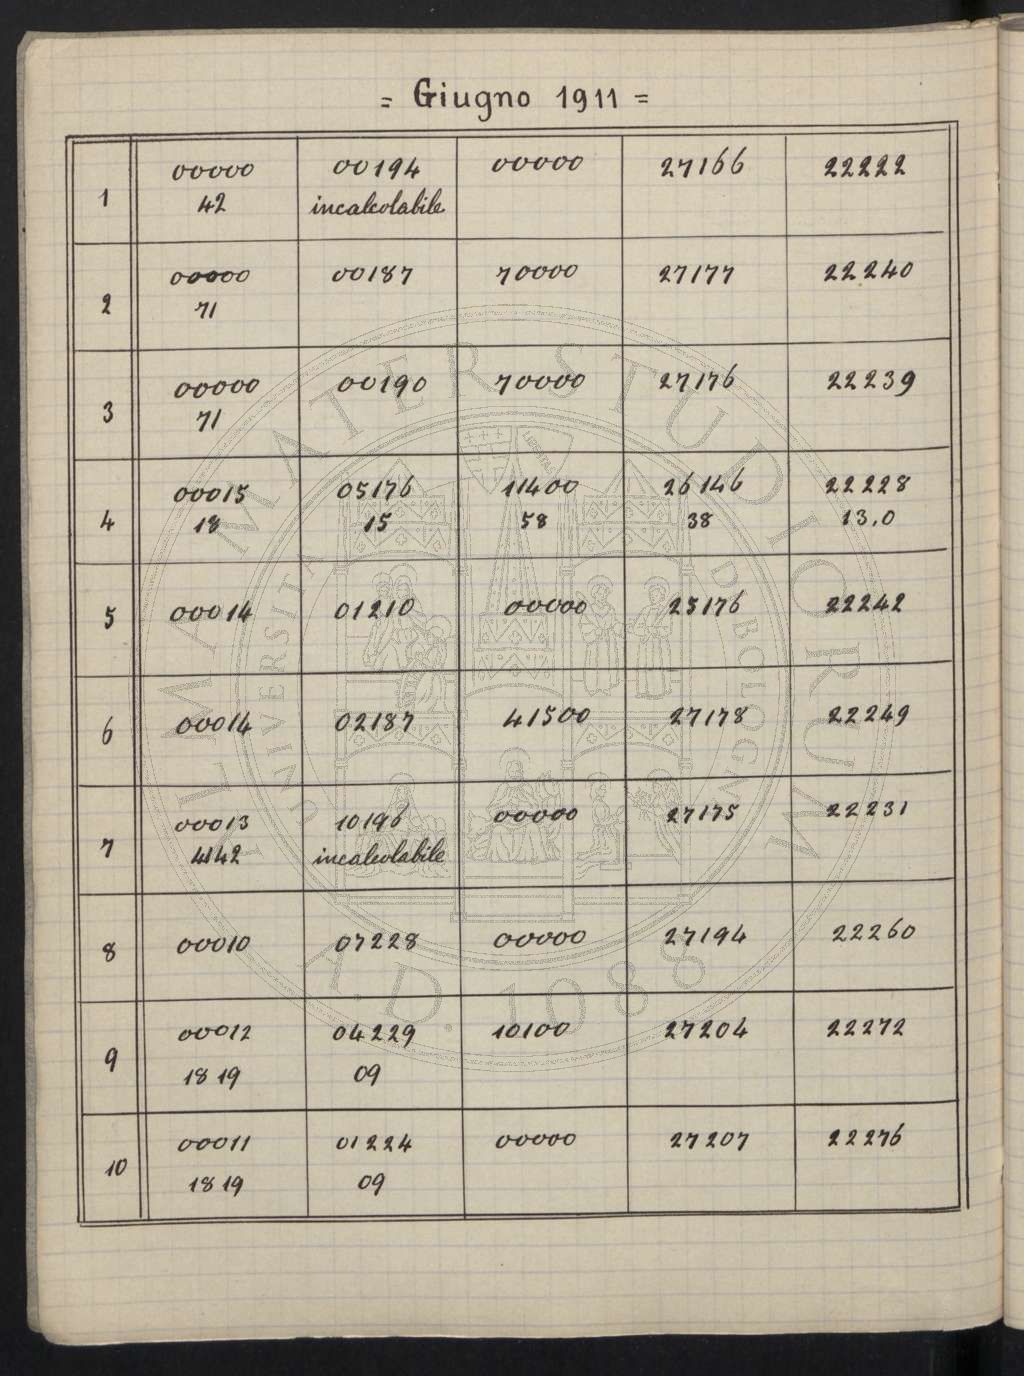 = Giugno 1911 =
1 00000 00194 00000 27166 22222
42 incalcolabile
2 00000 00187 70000 27177 22240
71
3 00000 00190 70000 27176 22239
71
4 00015 05176 11400 26146 22228
18 15 58 38 13.0
5 00014 01210 00000 25176 22242
6 00014 02187 41500 27178 22249
7 00013 10196 00000 27175 22231
4142 incalcolabile
8 00010 07228 00000 27194 22260
9 00012 04229 10100 27204 22272
18 19 09
10 00011 01224 00000 27207 22276
18 19 09
ALMA MATER STUDIORUM
A.D. 1088
UNIVERSITÀ DI BOLOGNA